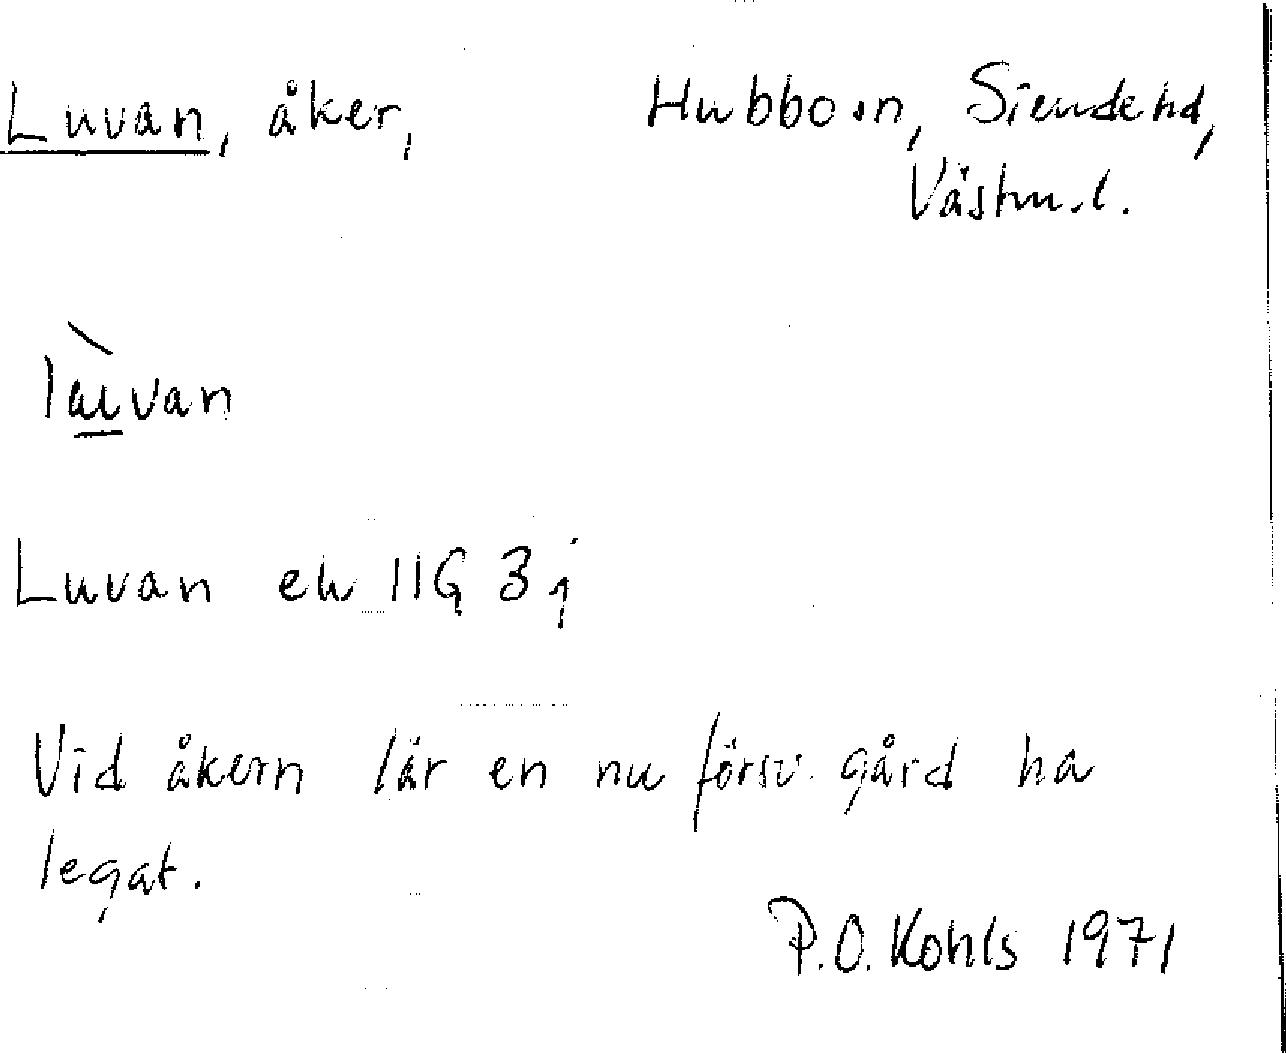 Luvan, åker, Hubbo sn, Siende hd,
Västm. l.
Luvan ek 11G 3j
Vid åkern lär en nu försv. gård ha
legat.
P.O. Kohls 1971